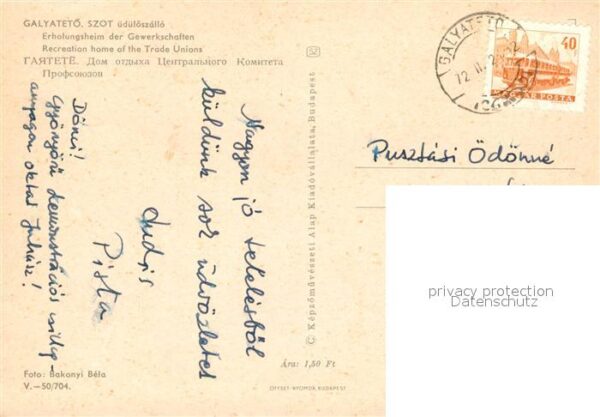 GALYATETŐ. SZOT üdülőszálló
Erholungsheim der Gewerkschaften
Recreation home of the Trade Unions
ГАЯТЕТЁ. Дом отдыха Центрального Комитета
Профсоюзов
Nagyon jó telelésből
küldünk sok üdvözletet
Pista
Döníci!
Gyönyörű demonstrációs
anyagon oktat Juhász!
Foto: Bakonyi Béla
V.—50/704.
52
© Képzőművészeti Alap Kiadóvállalata, Budapest
Ára: 1,50 Ft
OFFSET-NYOMDA, BUDAPEST
GALYATETŐ
72 II
40
MAGYAR POSTA
Pusztási Ödönné
privacy protection
Datenschutz